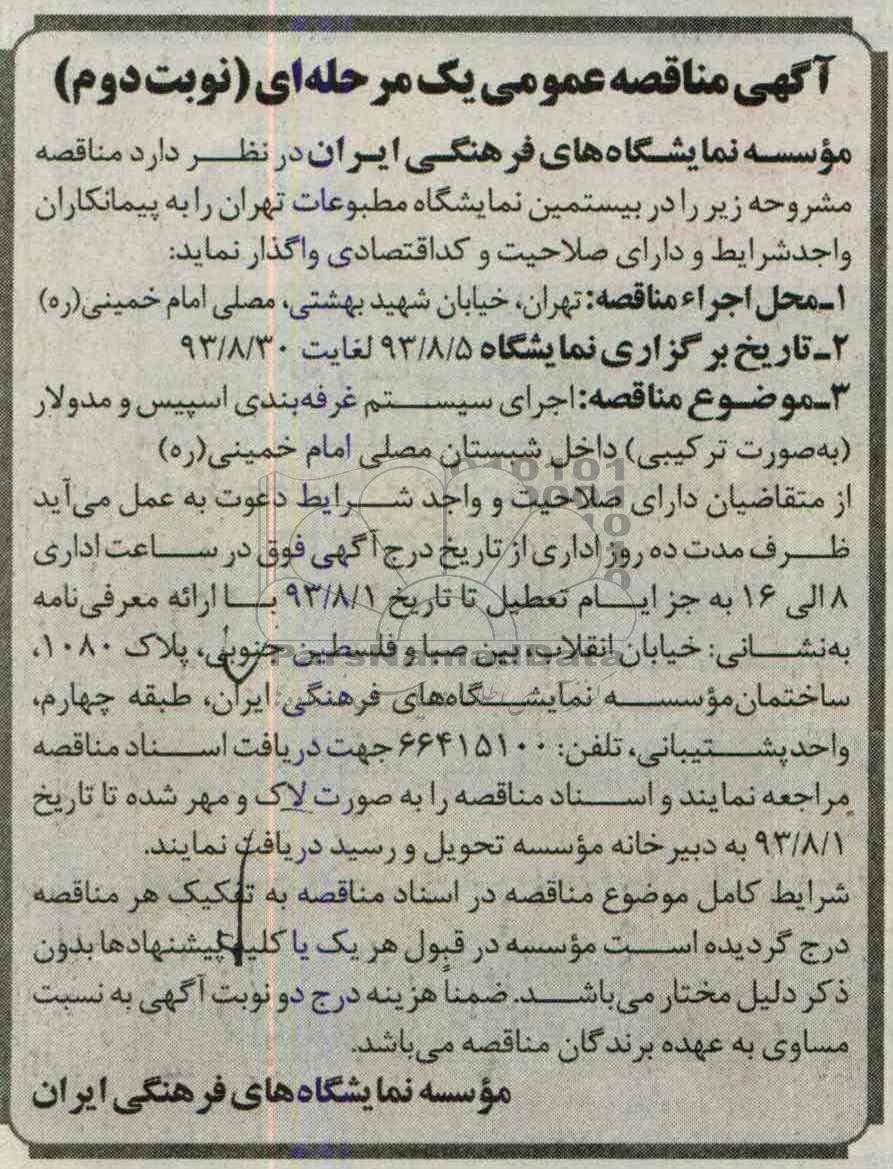 آگهی مناقصه عمومی یک مرحله‌ای (نوبت دوم)
مؤسسه نمایشگاه‌های فرهنگی ایران در نظر دارد مناقصه
مشروحه زیر را در بیستمین نمایشگاه مطبوعات تهران را به پیمانکاران
واجدشرایط و دارای صلاحیت و کداقتصادی واگذار نماید:
۱ـ محل اجراء مناقصه: تهران، خیابان شهید بهشتی، مصلی امام خمینی(ره)
۲ـ تاریخ برگزاری نمایشگاه ۹۳/۸/۵ لغایت ۹۳/۸/۳۰
۳ـ موضوع مناقصه: اجرای سیستم غرفه‌بندی اسپیس و مدولار
(به‌صورت ترکیبی) داخل شبستان مصلی امام خمینی(ره)
از متقاضیان دارای صلاحیت و واجد شرایط دعوت به عمل می‌آید
ظرف مدت ده روز اداری از تاریخ درج آگهی فوق در ساعت اداری
۸ الی ۱۶ به جز ایام تعطیل تا تاریخ ۹۳/۸/۱ با ارائه معرفی‌نامه
به‌نشانی: خیابان انقلاب، بین صبا و فلسطین جنوبی، پلاک ۱۰۸۰،
ساختمان مؤسسه نمایشگاه‌های فرهنگی ایران، طبقه چهارم،
واحد پشتیبانی، تلفن: ۶۶۴۱۵۱۰۰ جهت دریافت اسناد مناقصه
مراجعه نمایند و اسناد مناقصه را به صورت لاک و مهر شده تا تاریخ
۹۳/۸/۱ به دبیرخانه مؤسسه تحویل و رسید دریافت نمایند.
شرایط کامل موضوع مناقصه در اسناد مناقصه به تفکیک هر مناقصه
درج گردیده است مؤسسه در قبول هر یک یا کلیه پیشنهادها بدون
ذکر دلیل مختار می‌باشد. ضمناً هزینه درج دو نوبت آگهی به نسبت
مساوی به عهده برندگان مناقصه می‌باشد.
مؤسسه نمایشگاه‌های فرهنگی ایران
ParsNamadData